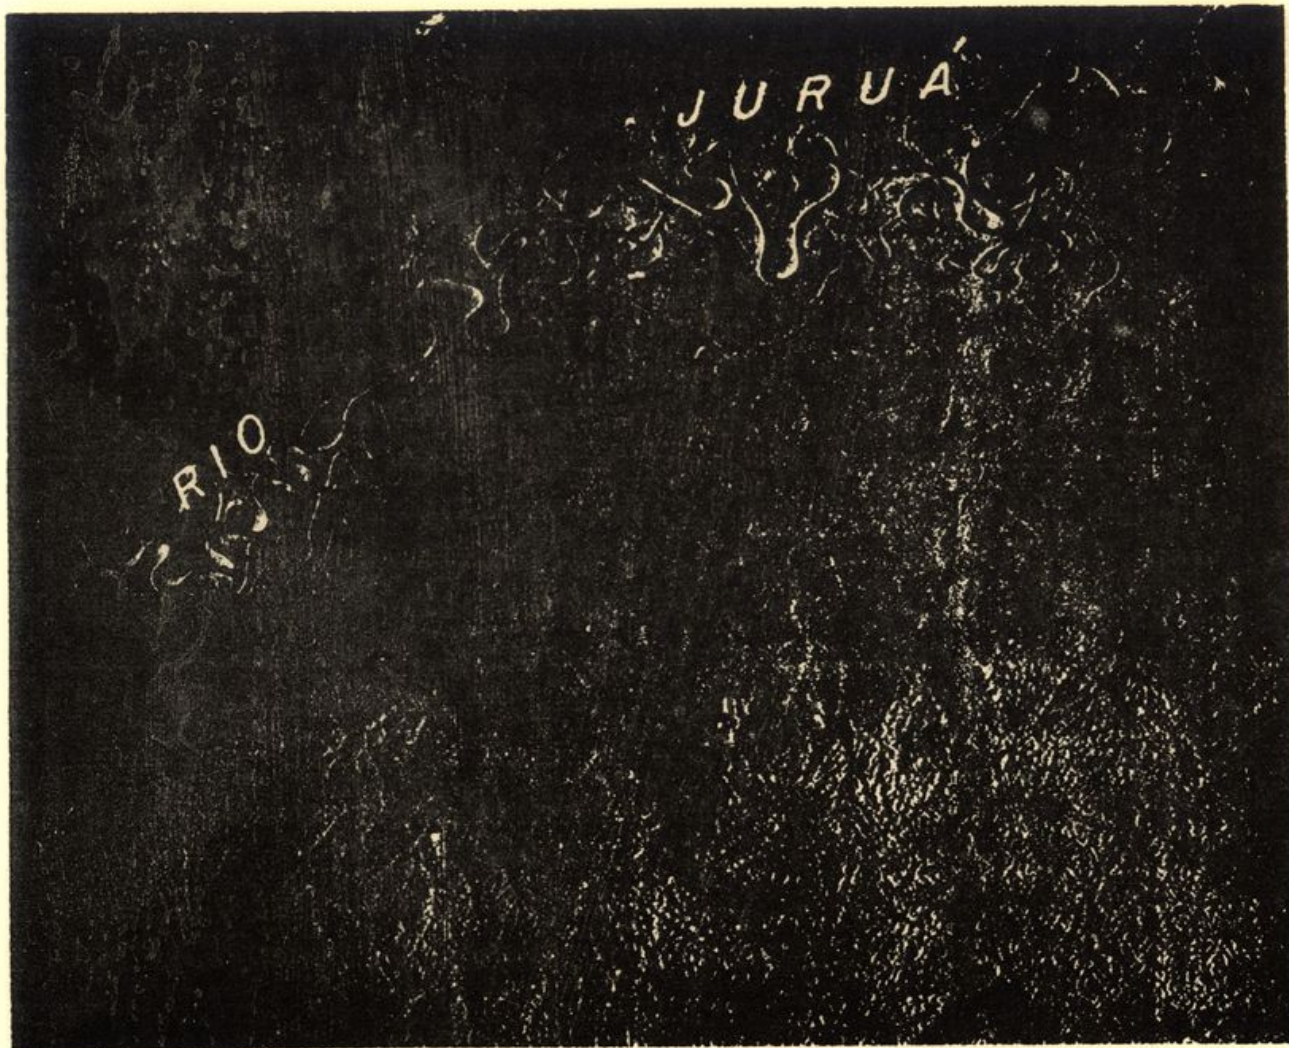 RIO JURUÁ